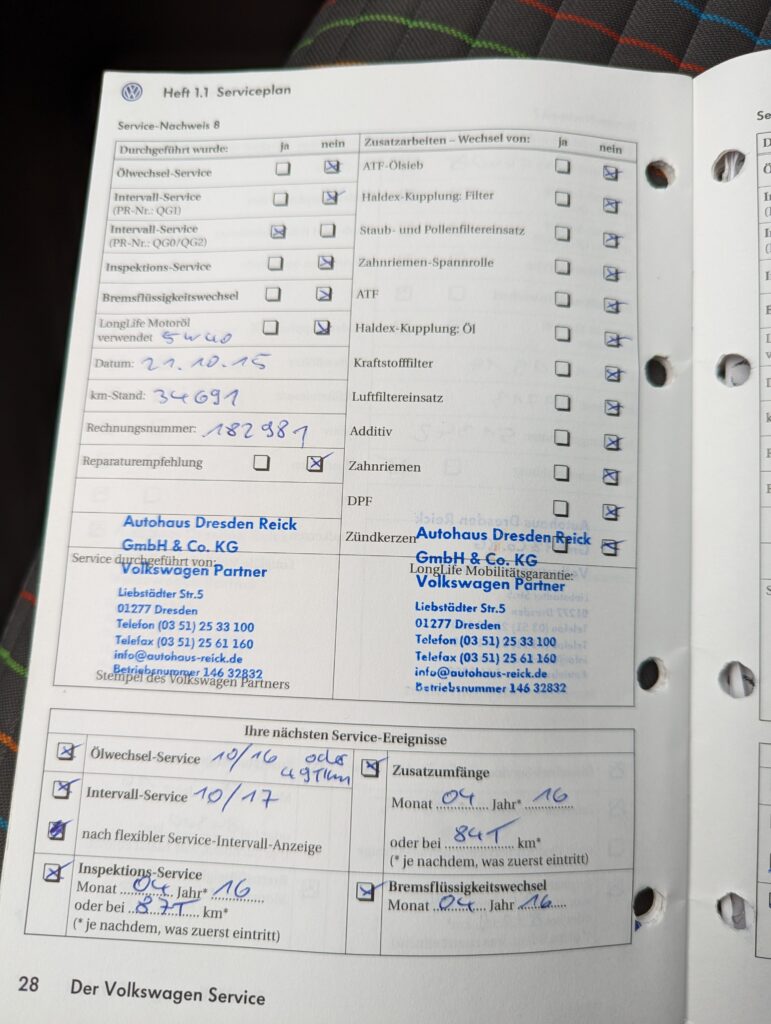 Heft 1.1 Serviceplan
Service-Nachweis 8
Durchgeführt wurde: ja nein
Ölwechsel-Service
Intervall-Service
(PR-Nr.: QG1)
Intervall-Service
(PR-Nr.: QG0/QG2)
Inspektions-Service
Bremsflüssigkeitswechsel
LongLife Motoröl
verwendet 5W40
Datum: 21.10.15
km-Stand: 34691
Rechnungsnummer: 182981
Reparaturempfehlung
Zusatzarbeiten – Wechsel von: ja nein
ATF-Ölsieb
Haldex-Kupplung: Filter
Staub- und Pollenfiltereinsatz
Zahnriemen-Spannrolle
ATF
Haldex-Kupplung: Öl
Kraftstofffilter
Luftfiltereinsatz
Additiv
Zahnriemen
DPF
Zündkerzen
Autohaus Dresden Reick
GmbH & Co. KG
Service durchgeführt von:
Volkswagen Partner
Liebstädter Str.5
01277 Dresden
Telefon (03 51) 25 33 100
Telefax (03 51) 25 61 160
info@autohaus-reick.de
Betriebsnummer 146 32832
Stempel des Volkswagen Partners
Autohaus Dresden Reick
GmbH & Co. KG
LongLife Mobilitätsgarantie:
Volkswagen Partner
Liebstädter Str.5
01277 Dresden
Telefon (03 51) 25 33 100
Telefax (03 51) 25 61 160
info@autohaus-reick.de
Betriebsnummer 146 32832
Ihre nächsten Service-Ereignisse
Ölwechsel-Service 10/16 oder
49Tkm
Intervall-Service 10/17
nach flexibler Service-Intervall-Anzeige
Inspektions-Service
Monat 04 Jahr* 16
oder bei 87T km*
(* je nachdem, was zuerst eintritt)
Zusatzumfänge
Monat 04 Jahr* 16
oder bei 84T km*
(* je nachdem, was zuerst eintritt)
Bremsflüssigkeitswechsel
Monat 04 Jahr 16
28 Der Volkswagen Service